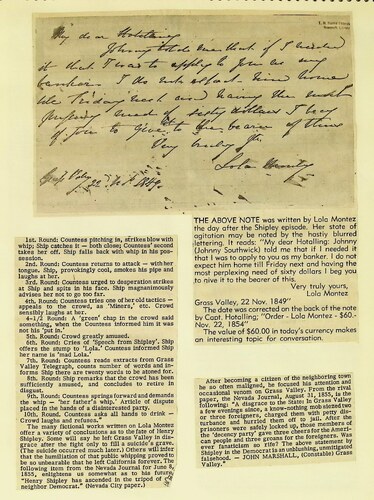 My dear Hotaling
Johnny told me that if I needed
it that I was to apply to you as my
banker. I do not expect him home
till Friday next and having the most
perplexing need of sixty dollars I beg
of you to give to the bearer of this
Very truly Yr.
Lola Montez
Grass Valley
22 Nov. 1849
1st. Round: Countess pitching in, strikes blow with
whip; Ship catches it — both close; Countess' second
takes her off. Ship falls back with whip in his pos-
session.
2nd. Round: Countess returns to attack — with her
tongue. Ship, provokingly cool, smokes his pipe and
laughs at her.
3rd. Round: Countess urged to desperation strikes
at Ship and spits in his face. Ship magnanimously
advises her not to go too far.
4th. Round: Countess tries one of her old tactics —
appeals to the crowd, as 'Miners,' etc. Crowd
sensibly laughs at her.
4-1/2 Round: A 'green' chap in the crowd said
something, when the Countess informed him it was
not his 'put in.'
5th. Round: Crowd greatly amused.
6th. Round: Cries of 'Speech from Shipley.' Ship
offers the stump to 'Lola.' Countess informed Ship
her name is 'mad Lola.'
7th. Round: Countess reads extracts from Grass
Valley Telegraph, counts number of words and in-
forms Ship there are twenty words to be atoned for.
8th. Round: Ship remarks that the crowd has been
sufficiently amused, and concludes to retire in
disgust.
9th. Round: Countess springs forward and demands
the whip — 'her father's whip.' Article of dispute
placed in the hands of a disinterested party.
10th. Round: Countess asks all hands to drink —
Crowd laughs and refuses.
The many fictional works written on Lola Montez
offer a variety of suggestions as to the fate of Henry
Shipley. Some will say he left Grass Valley in dis-
grace after the fight only to fill a suicide's grave.
(The suicide occurred much later.) Others will infer
that the humiliation of that public whipping proved to
be so unbearable that he left California forever. The
following item from the Nevada Journal for June 8,
1855, enlightens us somewhat as to his true status:
"Henry Shipley has ascended in the tripod of the
neighbor Democrat." (Nevada City paper.)
THE ABOVE NOTE was written by Lola Montez
the day after the Shipley episode. Her state of
agitation may be noted by the hastily blurred
lettering. It reads: "My dear Hotalling: Johnny
(Johnny Southwick) told me that if I needed it
that I was to apply to you as my banker. I do not
expect him home till Friday next and having the
most perplexing need of sixty dollars I beg you
to give it to the bearer of this.
Very truly yours,
Lola Montez
Grass Valley, 22 Nov. 1849"
The date was corrected on the back of the note
by Capt. Hotaling; "Order - Lola Montez - $60.-
Nov. 22, 1854"
The value of $60.00 in today's currency makes
an interesting topic for conversation.
After becoming a citizen of the neighboring town
he so often maligned, he focused his attention and
occasional venom on Grass Valley. From the rival
paper, the Nevada Journal, August 31, 1855, is the
following: "A disgrace to the State is Grass Valley
a few evenings since, a know-nothing mob arrested two
or three foreigners, charged them with petty dis-
turbance and hurried them off to jail. After the
prisoners were safely locked up, those members of
the 'decency party' gave three cheers for the Ameri-
can people and three groans for the foreigners. Was
ever fanaticism so rife? The above statement by
Shipley in the Democrat is an unblushing, unmitigated
falsehood. — JOHN MARSHALL, (Constable) Grass
Valley."